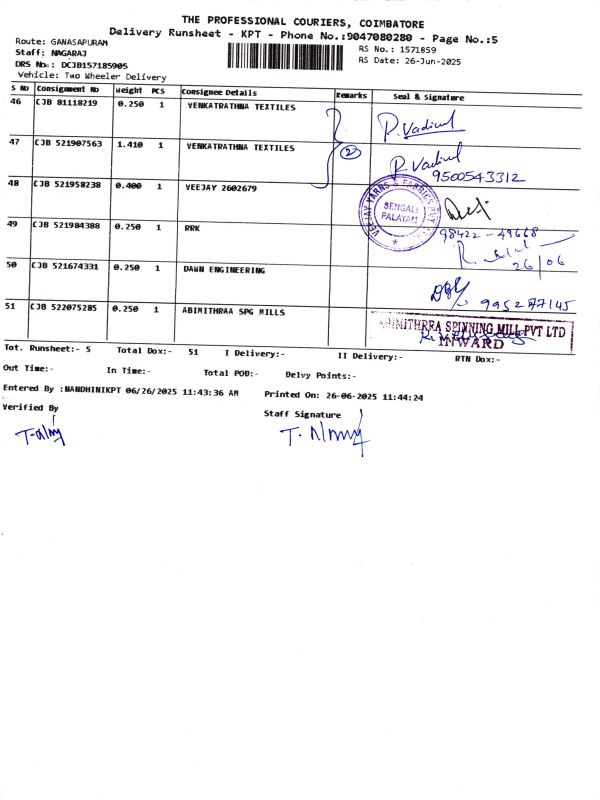 THE PROFESSIONAL COURIERS, COIMBATORE
Delivery Runsheet - KPT - Phone No.:9047080280 - Page No.:5
Route: GANASAPURAM
Staff: NAGARAJ
DRS No.: DCJB157185905
Vehicle: Two Wheeler Delivery
RS No.: 1571859
RS Date: 26-Jun-2025
S No Consignment No Weight PCS Consignee Details Remarks Seal & Signature
46 CJB 81118219 0.250 1 VENKATRATHNA TEXTILES P. Vadivel
47 CJB 521907563 1.410 1 VENKATRATHNA TEXTILES 2 P. Vadivel
9500543312
48 CJB 521958238 0.400 1 VEEJAY 2602679
VEEJAY YARNS & FABRICS PVT
SENGALI
PALAYAM
49 CJB 521984388 0.250 1 RRK 98422-49668
26/06
50 CJB 521674331 0.250 1 DAWN ENGINEERING
51 CJB 522075285 0.250 1 ABIMITHRAA SPG MILLS
ABIMITHRRA SPINNING MILL PVT LTD
INWARD
Tot. Runsheet:- 5 Total Dox:- 51 I Delivery:- II Delivery:- RTN Dox:-
Out Time:- In Time:- Total POD:- Delvy Points:-
Entered By :NANDHINIKPT 06/26/2025 11:43:36 AM Printed On: 26-06-2025 11:44:24
Verified By Staff Signature